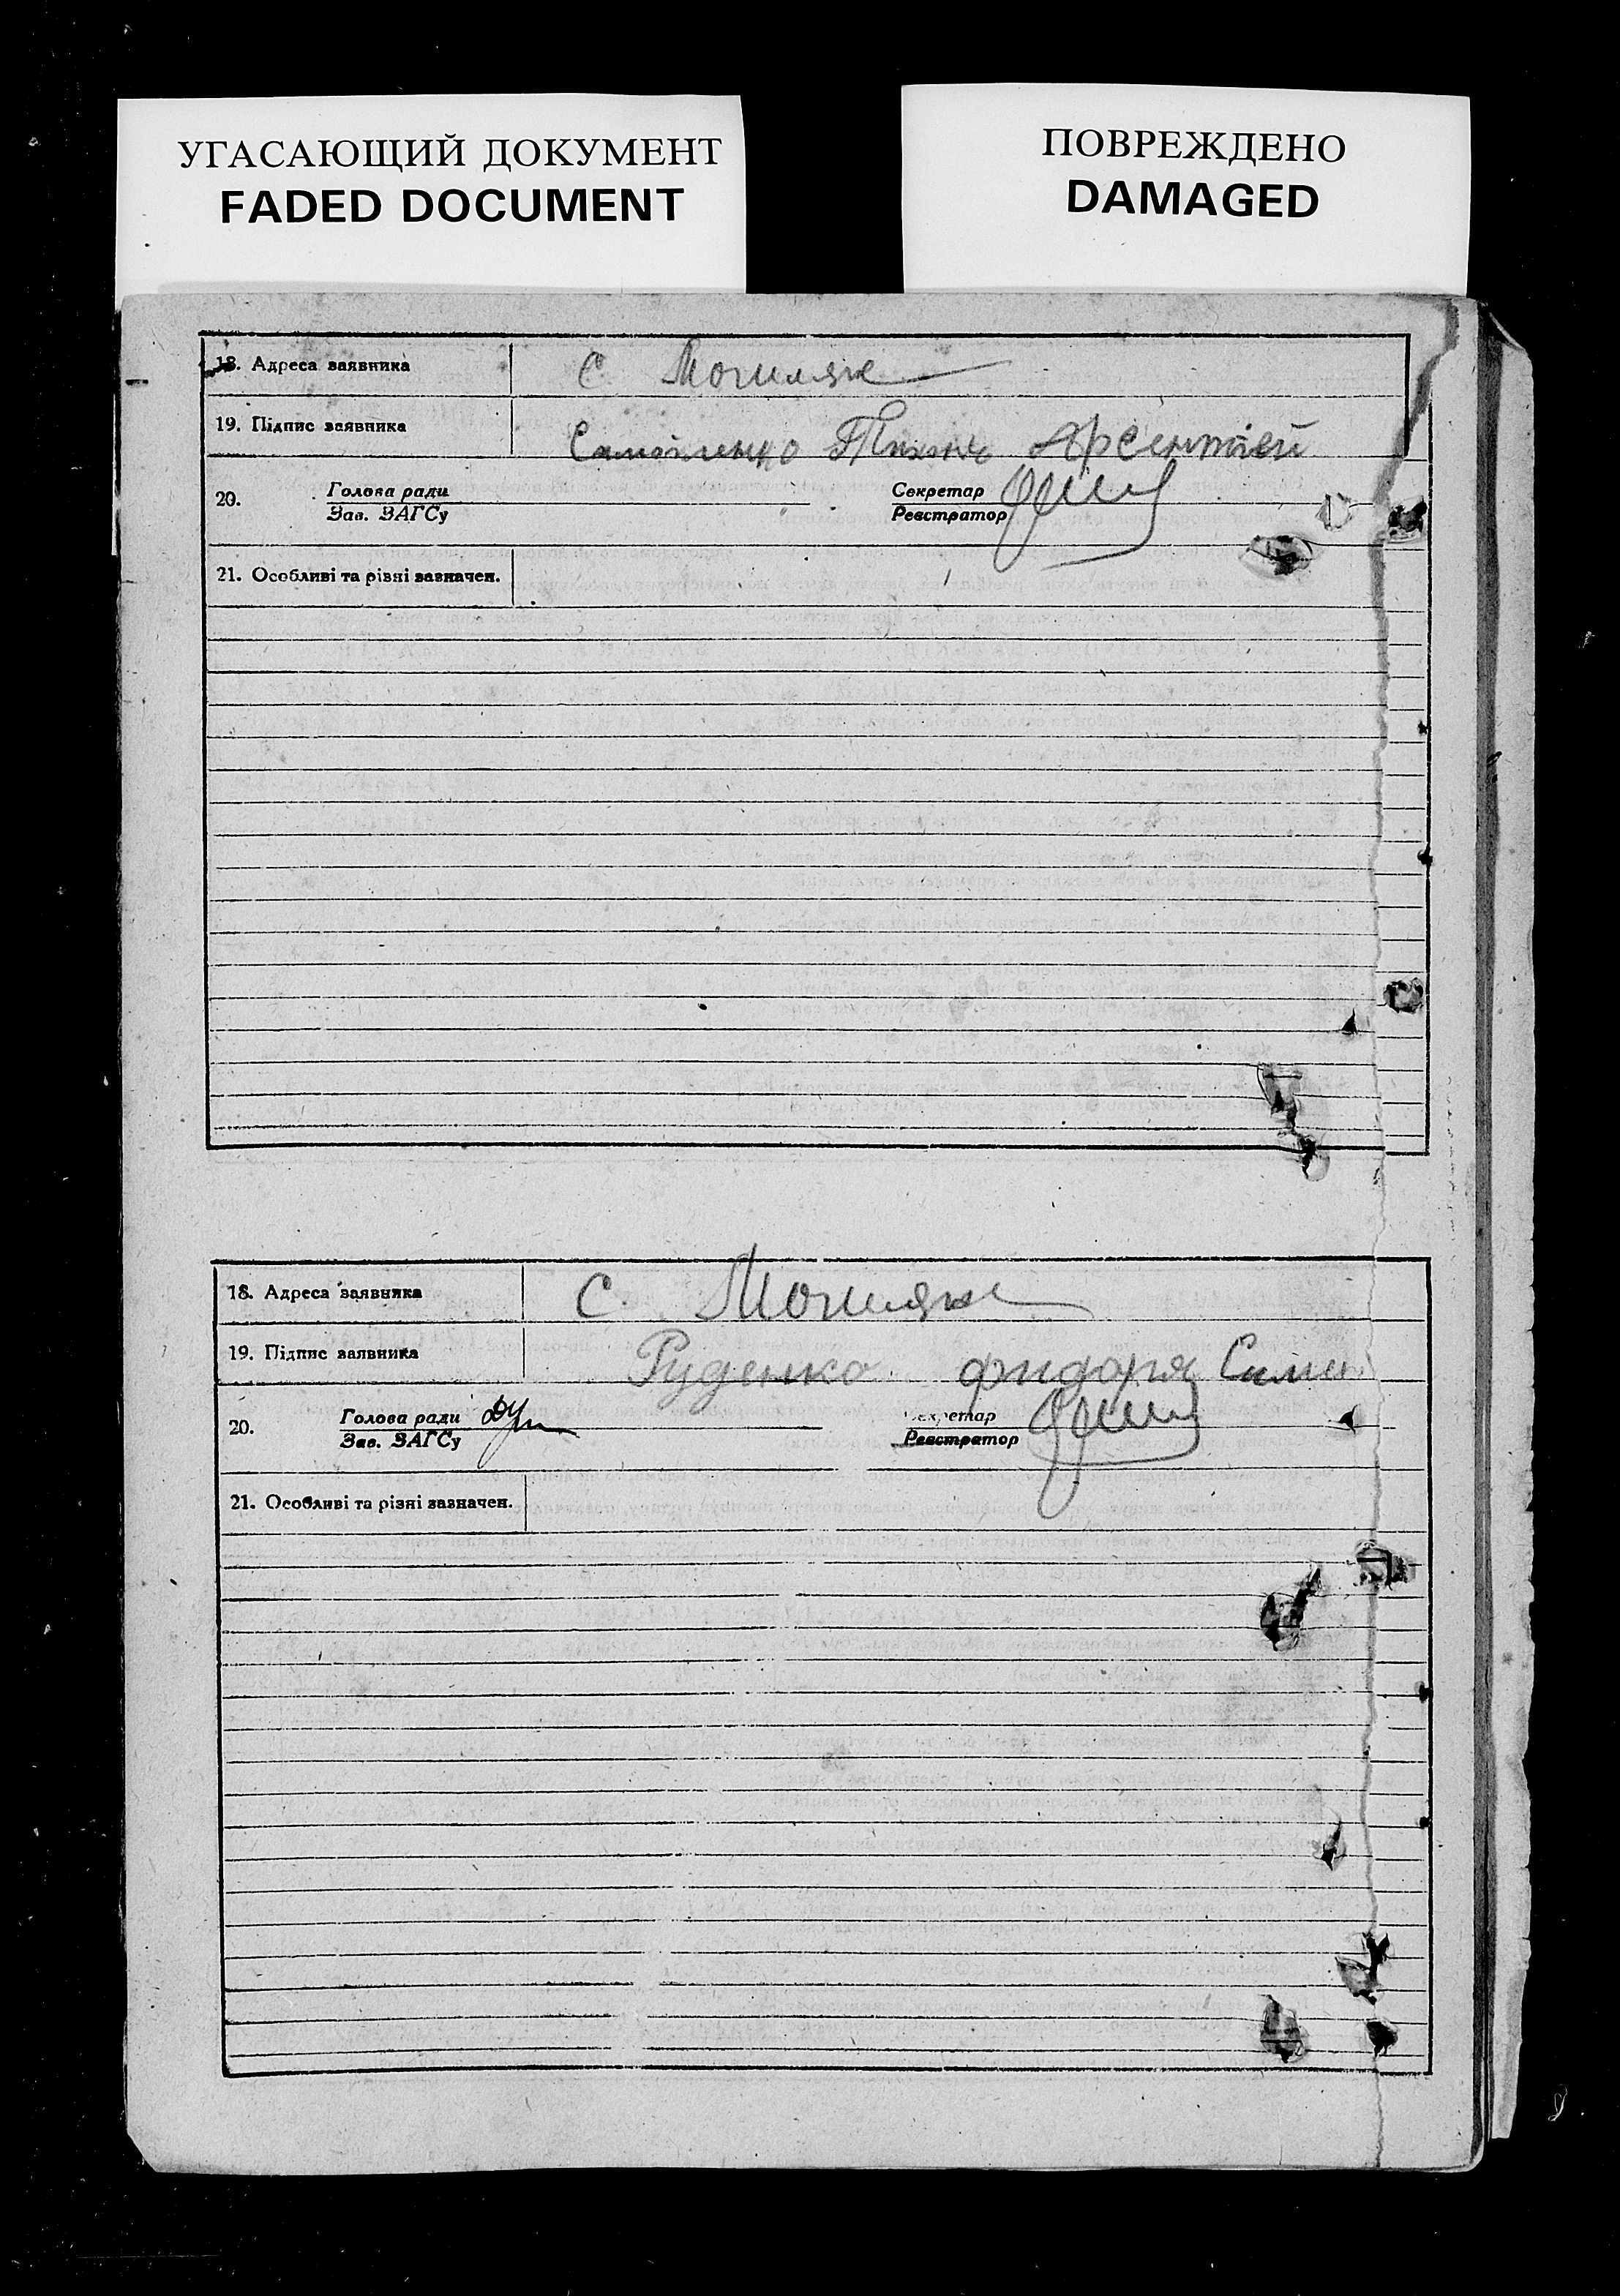 УГАСАЮЩИЙ ДОКУМЕНТ
FADED DOCUMENT
ПОВРЕЖДЕНО
DAMAGED
18. Адреса заявника С Могиляне
19. Підпис заявника Самойленко Тихонь Арсентіей
20. Голова ради Секретар
Зав. ЗАГСу Реєстратор
21. Особливі та різні зазначен.
18. Адреса заявника С. Могиляне
19. Підпис заявника Руденко фидоря
20. Голова ради Секретар
Зав. ЗАГСу Реєстратор
21. Особливі та різні зазначен.